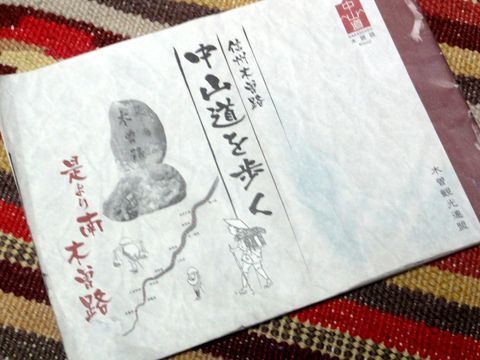 信州木曽路
中山道を歩く
是より南
木曽路
木曽路
中山道
木曽路
木曽観光連盟